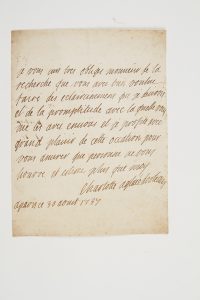 je vous suis tres obligé monsieur de la
recherche que vous avés bien voulue
faire des eclaircissements que je desirois
et de la promptitude avec la quelle vous
me les avés envoies et je profite avec
grand plaisir de cette occation pour
vous assurer que personne ne vous
honnore et estime plus que moy
Charlotte aglae
a paris ce 30 aoust 1737